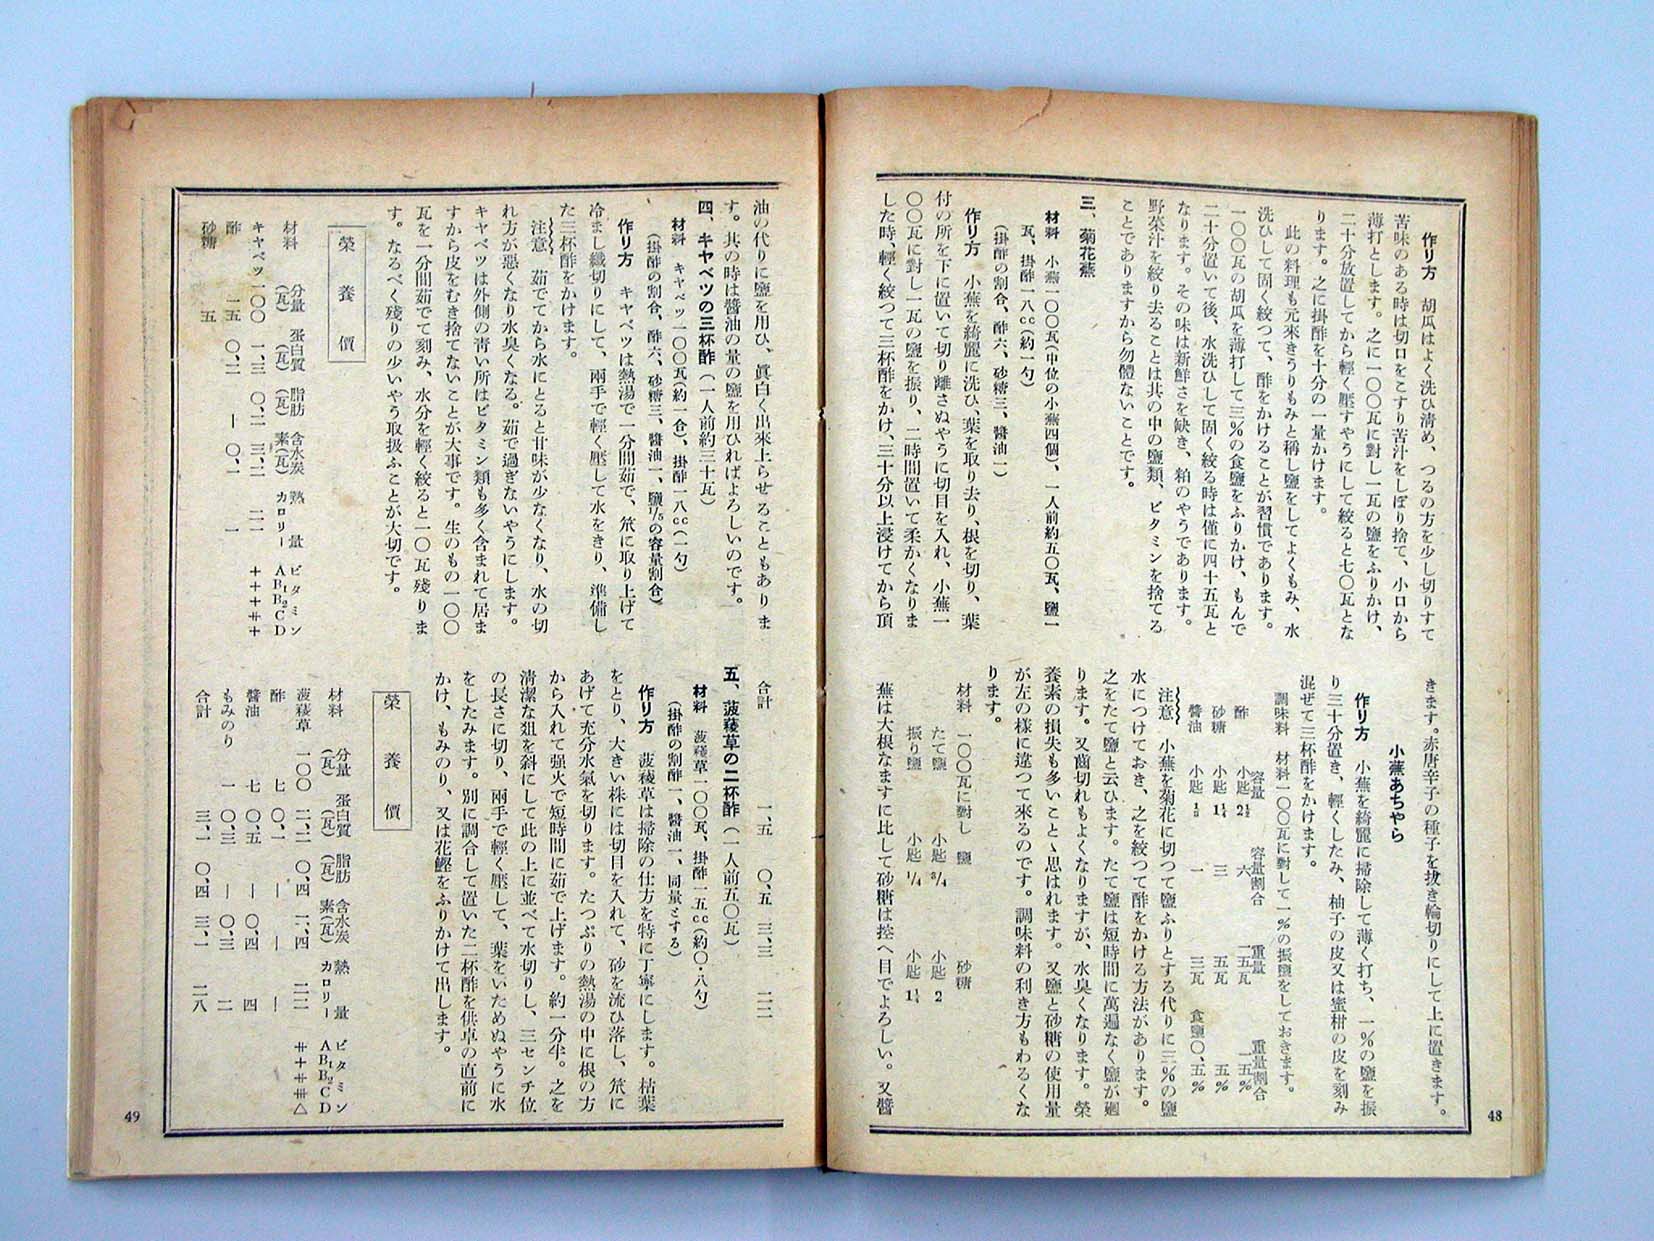 作り方　胡瓜はよく洗ひ淸め、つるの方を少し切りすて
苦味のある時は切口をこすり苦汁をしぼり捨て、小口から
薄打とします。之に一〇〇瓦に對し一瓦の鹽をふりかけ、
二十分放置してから輕く壓すやうにして絞ると七〇瓦とな
ります。之に掛酢を十分の一量かけます。
此の料理も元來きうりもみと稱し鹽をしてよくもみ、水
洗ひして固く絞つて、酢をかけることが習慣であります。
一〇〇瓦の胡瓜を薄打して三％の食鹽をふりかけ、もんで
二十分置いて後、水洗ひして固く絞る時は僅に四十五瓦と
なります。その味は新鮮さを缺き、粕のやうであります。
野菜汁を絞り去ることは其の中の鹽類、ビタミンを捨てる
ことでありますから勿體ないことです。
三、菊花蕪
材料　小蕪一〇〇瓦(中位の小蕪四個)、一人前約五〇瓦、鹽一
瓦、掛酢一八cc(約一勺)
(掛酢の割合、酢六、砂糖三、醬油一)
作り方　小蕪を綺麗に洗ひ、葉を取り去り、根を切り、葉
付の所を下に置いて切り離さぬやうに切目を入れ、小蕪一
〇〇瓦に對し一瓦の鹽を振り、二時間置いて柔かくなりま
した時、輕く絞つて三杯酢をかけ、三十分以上浸けてから頂
きます。赤唐辛子の種子を拔き輪切りにして上に置きます。
小蕪あちやら
作り方　小蕪を綺麗に掃除して薄く打ち、一％の鹽を振
り三十分置き、輕くしたみ、柚子の皮又は蜜柑の皮を刻み
混ぜて三杯酢をかけます。
調味料　材料一〇〇瓦に對して一％の振鹽をしておきます。
容量　容量割合　重量　重量割合
酢　小匙2½　六　一五瓦　一五％
砂糖　小匙1¼　三　五瓦　五％
醬油　小匙　一　三瓦　食鹽〇、五％
注意　小蕪を菊花に切つて鹽ふりとする代りに三％の鹽
水につけておき、之を絞つて酢をかける方法があります。
之をたて鹽と云ひます。たて鹽は短時間に萬遍なく鹽が廻
ります。又齒切れもよくなりますが、水臭くなります。榮
養素の損失も多いことゝ思はれます。又鹽と砂糖の使用量
が左の樣に違つて來るのです。調味料の利き方もわるくな
ります。
材料　一〇〇瓦に對し　鹽　砂糖
たて鹽　小匙¾　小匙2
振り鹽　小匙¼　小匙1¼
蕪は大根なますに比して砂糖は控へ目でよろしい。又醬
48
油の代りに鹽を用ひ、眞白く出來上らせることもありま
す。其の時は醬油の量の鹽を用ひればよろしいのです。
四、キヤベツの三杯酢(一人前約三十瓦)
材料　キヤベツ一〇〇瓦(約一合)、掛酢一八cc(一勺)
(掛酢の割合、酢六、砂糖三、醬油一、鹽1/5の容量割合)
作り方　キヤベツは熱湯で一分間茹で、笊に取り上げて
冷まし纖切りにして、兩手で輕く壓して水をきり、準備し
た三杯酢をかけます。
注意　茹でてから水にとると甘味が少なくなり、水の切
れ方が惡くなり水臭くなる。茹で過ぎないやうにします。
キヤベツは外側の靑い所はビタミン類も多く含まれて居ま
すから皮をむき捨てないことが大事です。生のもの一〇〇
瓦を一分間茹でて刻み、水分を輕く絞ると一〇瓦殘りま
す。なるべく殘りの少いやう取扱ふことが大切です。
榮養價
材料　分量(瓦)　蛋白質(瓦)　脂肪(瓦)　含水炭素(瓦)　熱量カロリー　ビタミンA B₁ B₂ C D
キヤベツ　一〇〇　一、三　〇、二　三、二　二一　＋＋＋卌＋
酢　二五　〇、二　｜　〇、一　一
砂糖　五
合計　一、五　〇、五　三、三　二二
五、菠薐草の二杯酢(一人前五〇瓦)
材料　菠薐草一〇〇瓦、掛酢一五cc(約〇・八勺)
(掛酢の割酢一、醬油一、同量とする)
作り方　菠薐草は掃除の仕方を特に丁寧にします。枯葉
をとり、大きい株には切目を入れて、砂を流ひ落し、笊に
あげて充分水氣を切ります。たつぷりの熱湯の中に根の方
から入れて强火で短時間に茹で上げます。約一分半。之を
淸潔な俎を斜にして此の上に並べて水切りし、三センチ位
の長さに切り、兩手で輕く壓して、葉をいためぬやうに水
をしたみます。別に調合して置いた二杯酢を供卓の直前に
かけ、もみのり、又は花鰹をふりかけて出します。
榮養價
材料　分量(瓦)　蛋白質(瓦)　脂肪(瓦)　含水炭素(瓦)　熱量カロリー　ビタミンA B₁ B₂ C D
菠薐草　一〇〇　二、二　〇、四　二、四　二二　卌＋卌卌△
酢　七　〇、一　｜　｜　｜
醬油　七　〇、五　｜　〇、四　四
もみのり　一　〇、三　｜　〇、三　二
合計　三、一　〇、四　三、一　二八
49